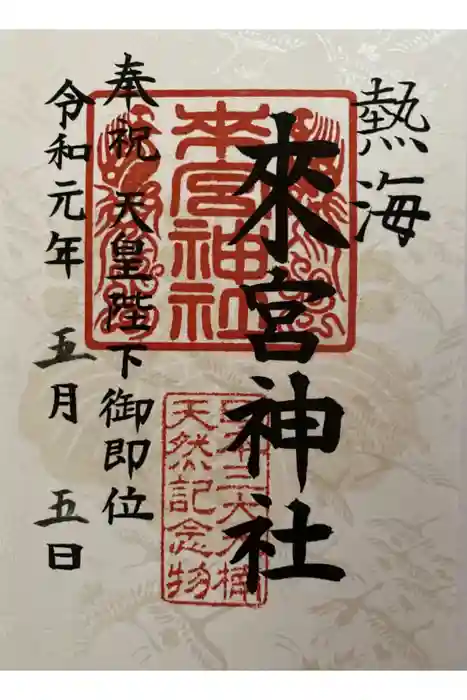 熱海
來宮神社
奉祝 天皇陛下御即位
令和元年 五月 五日
来宮神社
天然記念物